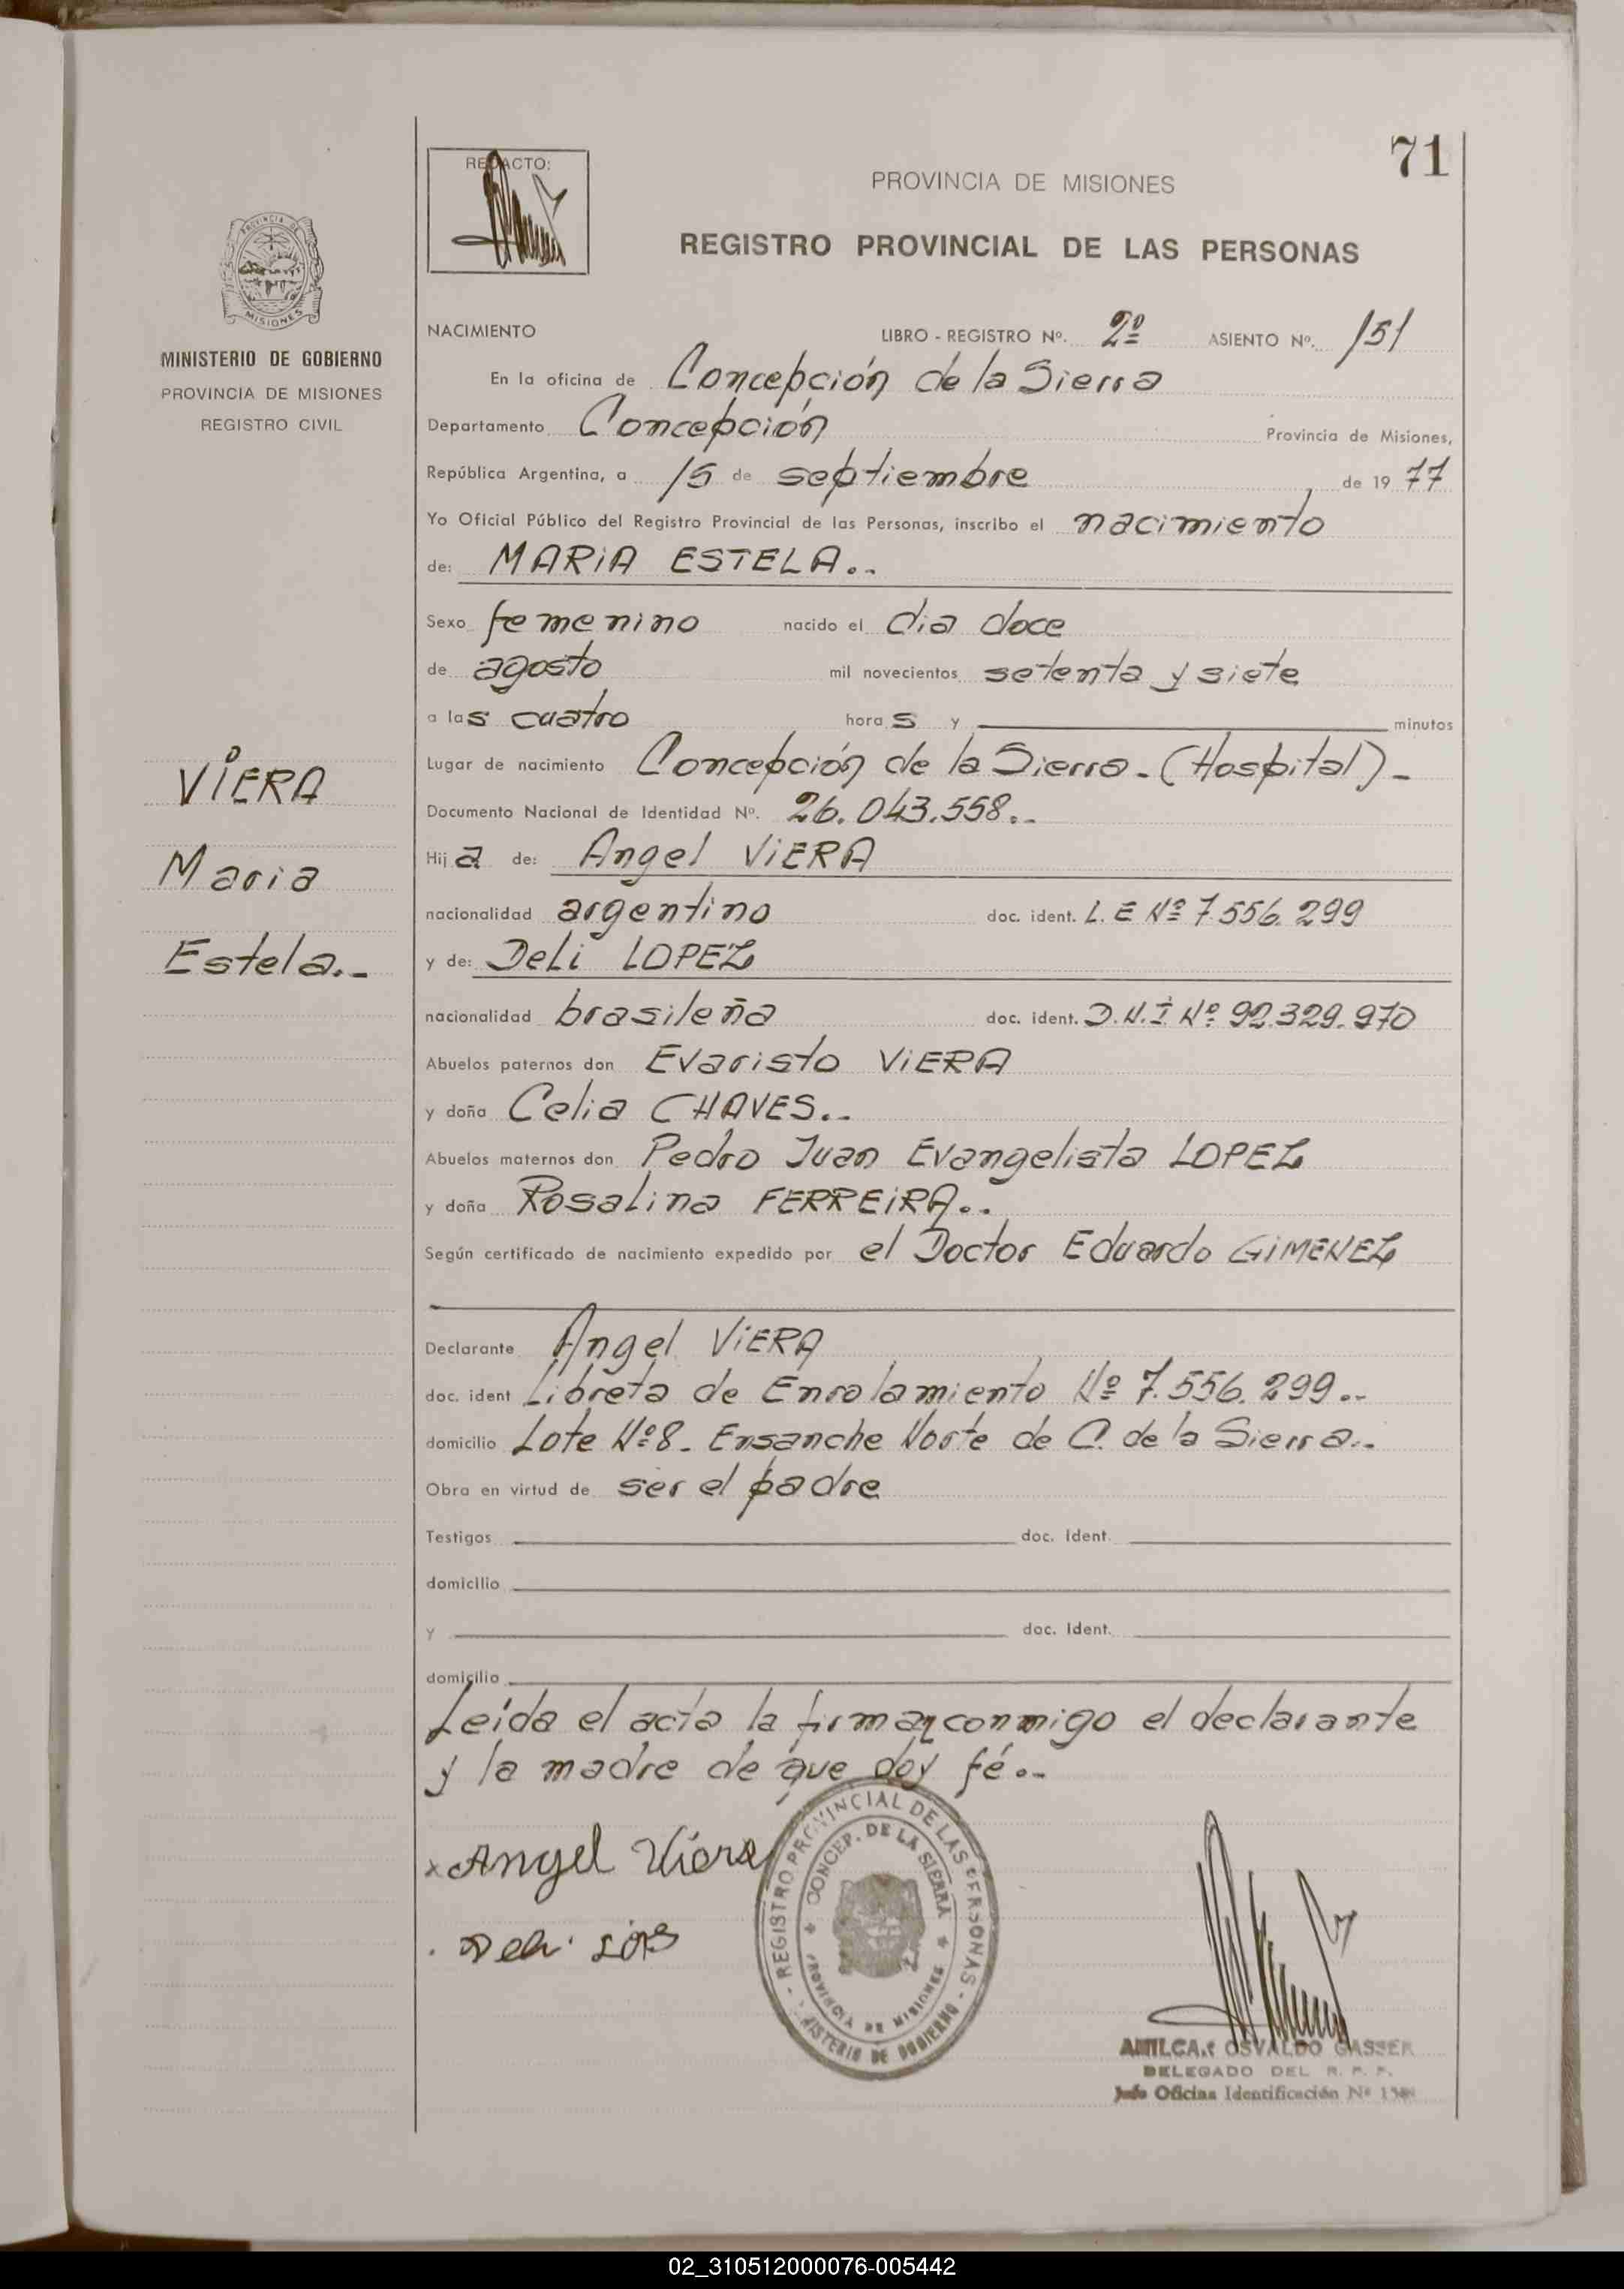 71
REDACTO:
PROVINCIA DE MISIONES
REGISTRO PROVINCIAL DE LAS PERSONAS
PROVINCIA DE
MISIONES
MINISTERIO DE GOBIERNO
PROVINCIA DE MISIONES
REGISTRO CIVIL
NACIMIENTO LIBRO - REGISTRO Nº. 2º ASIENTO Nº. 151
En la oficina de Concepción de la Sierra
Departamento Concepción Provincia de Misiones,
República Argentina, a 15 de septiembre de 19 77
Yo Oficial Público del Registro Provincial de las Personas, inscribo el nacimiento
de: MARIA ESTELA..
Sexo femenino nacido el dia doce
de agosto mil novecientos setenta y siete
a las cuatro horas y minutos
Lugar de nacimiento Concepción de la Sierra - (Hospital) -
Documento Nacional de Identidad Nº. 26.043.558.-
Hija de: Angel VIERA
nacionalidad argentino doc. ident. L. E Nº 7.556.299
y de: Deli LOPEZ
nacionalidad brasileña doc. ident. D.N.I Nº 92.329.970
Abuelos paternos don Evaristo VIERA
y doña Celia CHAVES..
Abuelos maternos don Pedro Juan Evangelista LOPEZ
y doña Rosalina FERREIRA..
Según certificado de nacimiento expedido por el Doctor Eduardo GIMENEZ
Declarante Angel VIERA
doc. ident Libreta de Enrolamiento Nº 7.556.299..
domicilio Lote Nº 8. Ensanche Norte de C. de la Sierra..
Obra en virtud de ser el padre
Testigos doc. Ident.
domicilio
y doc. Ident.
domicilio
Leida el acta la firman conmigo el declarante
y la madre de que doy fé.-
VIERA
Maria
Estela.-
x Angel Viera
Deli
REGISTRO PROVINCIAL DE LAS PERSONAS
CONCEP. DE LA SIERRA
PROVINCIA DE MISIONES
MINISTERIO DE GOBIERNO
AMILCAR OSVALDO GASSER
DELEGADO DEL R. P. P.
Jefe Oficina Identificación Nº
02_310512000076-005442